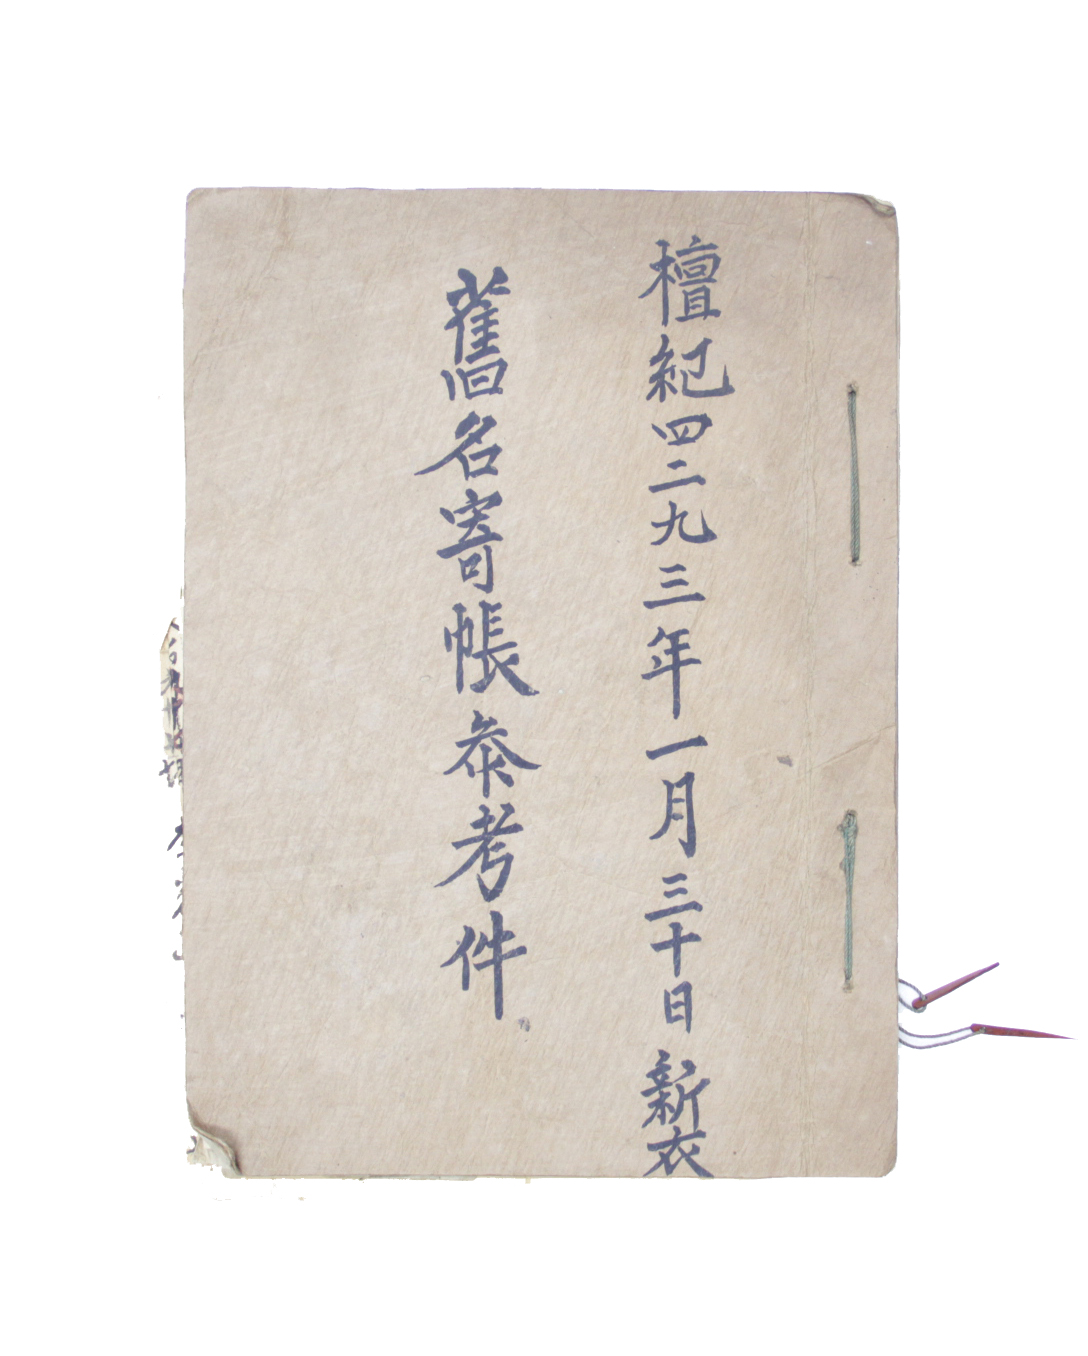 檀紀四二九三年一月三十日 新衣
舊名寄帳叅考件